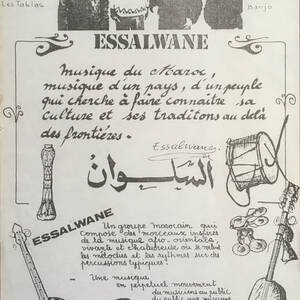 Les Tablas
Banjo
ESSALWANE
Musique du Maroc,
musique d'un pays, d'un peuple
qui cherche à faire connaître sa
culture et ses traditons au delà
des frontières.
Essalwane
السلوان
ESSALWANE
Un groupe marocain, qui
compose des morceaux inspirés
de la musique afro-orientale,
vivante et chaleureuse où se mêlent
les mélodies et les rythmes sur des
percussions typiques.
- Une musique
en perpetuel mouvement
du musiciens au public